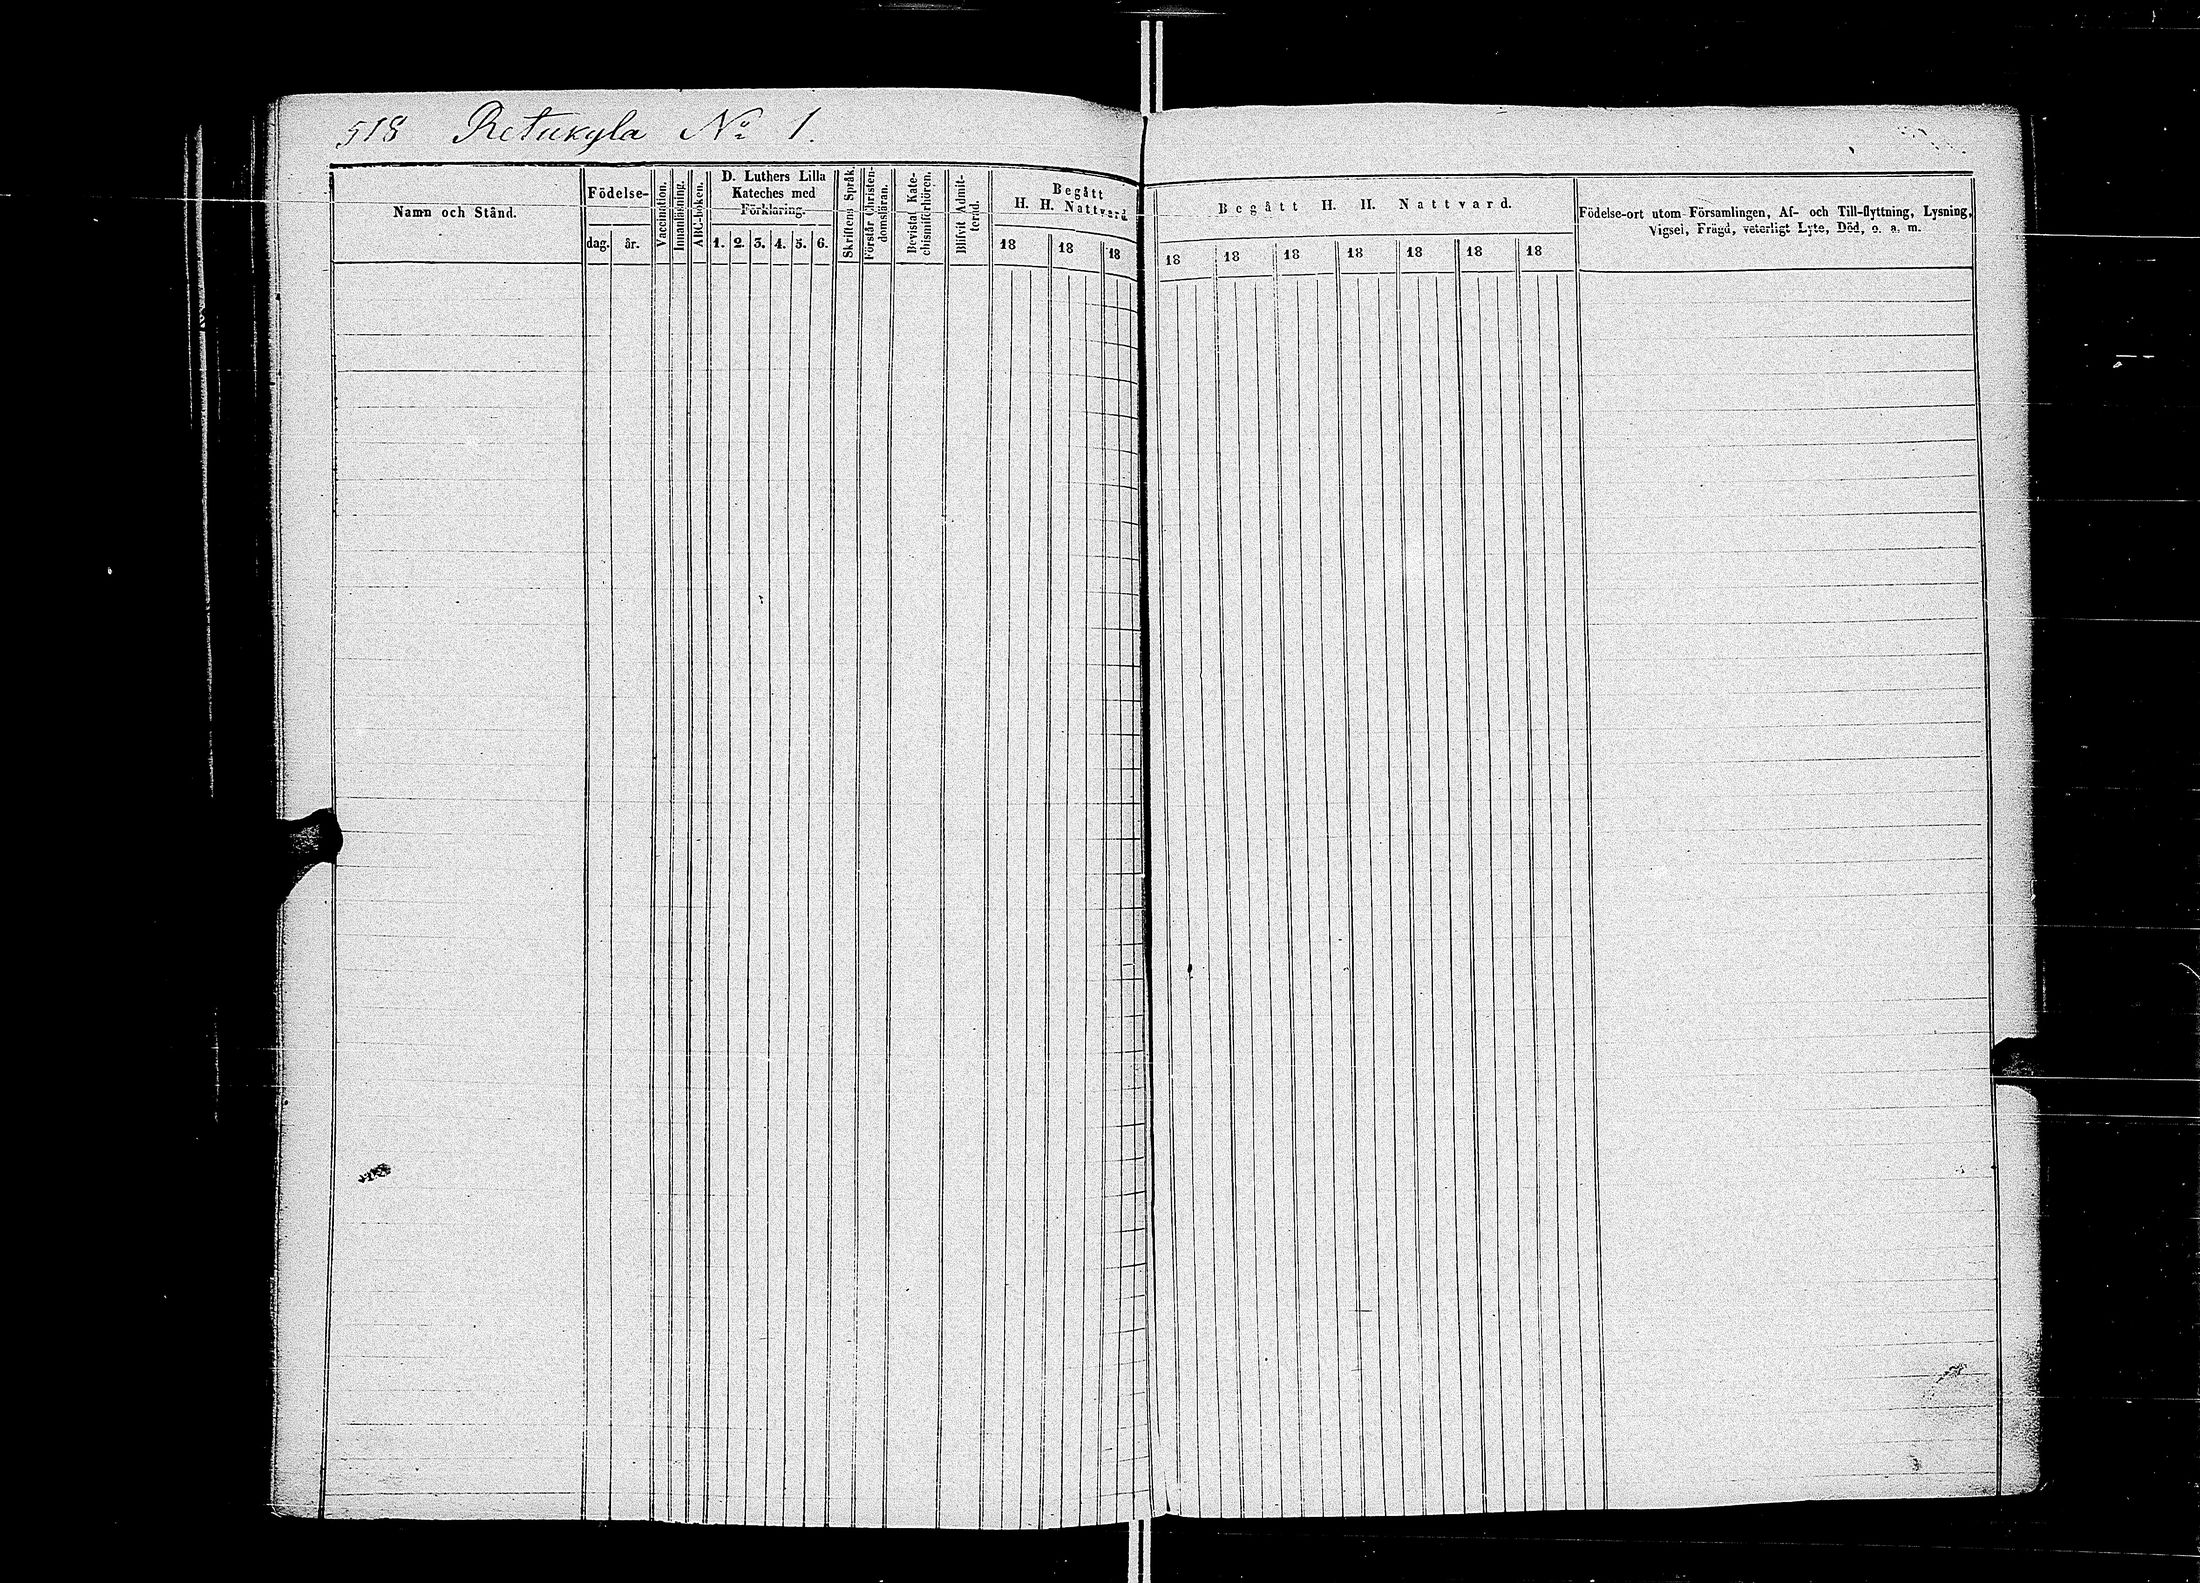 518 Retukyla No 1.
Namn och Stånd.
Födelse-
dag. år.
Vaccination.
Innanläsning.
ABC-boken.
D. Luthers Lilla
Kateches med
Förklaring.
1. 2. 3. 4. 5. 6.
Skriftens Språk.
Förstår Christen-
domsläran.
Bevistat Kate-
chismiförhören.
Blifvit Admit-
terad.
Begått
H. H. Nattvard.
18 18 18
Begått H. H. Nattvard.
18 18 18 18 18 18 18
Födelse-ort utom Församlingen, Af- och Till-flyttning, Lysning,
Vigsel, Frägd, veterligt Lyte, Död, o. a. m.